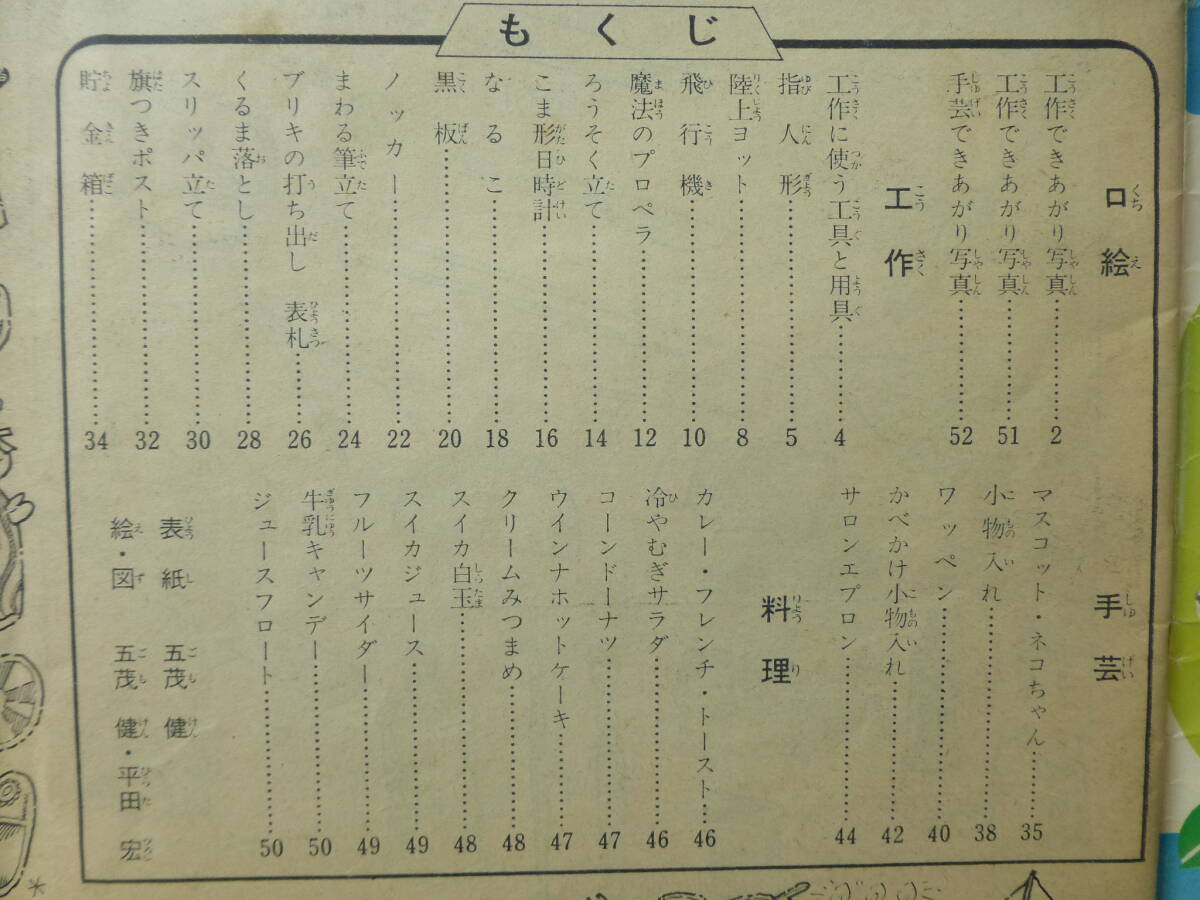 もくじ
口絵
工作できあがり写真……2
工作できあがり写真……51
手芸できあがり写真……52
工作
工作に使う工具と用具……4
指人形……5
陸上ヨット……8
飛行機……10
魔法のプロペラ……12
ろうそく立て……14
こま形日時計……16
なるこ……18
黒板……20
ノッカー……22
まわる筆立て……24
ブリキの打ち出し 表札……26
くるま落とし……28
スリッパ立て……30
旗つきポスト……32
貯金箱……34
手芸
マスコット・ネコちゃん……35
小物入れ……38
ワッペン……40
かべかけ小物入れ……42
サロンエプロン……44
料理
カレー・フレンチ・トースト……46
冷やむぎサラダ……46
コーンドーナツ……47
ウインナホットケーキ……47
クリームみつまめ……48
スイカ白玉……48
スイカジュース……49
フルーツサイダー……49
牛乳キャンデー……50
ジュースフロート……50
表紙 五茂 健
絵・図 五茂 健・平田 宏